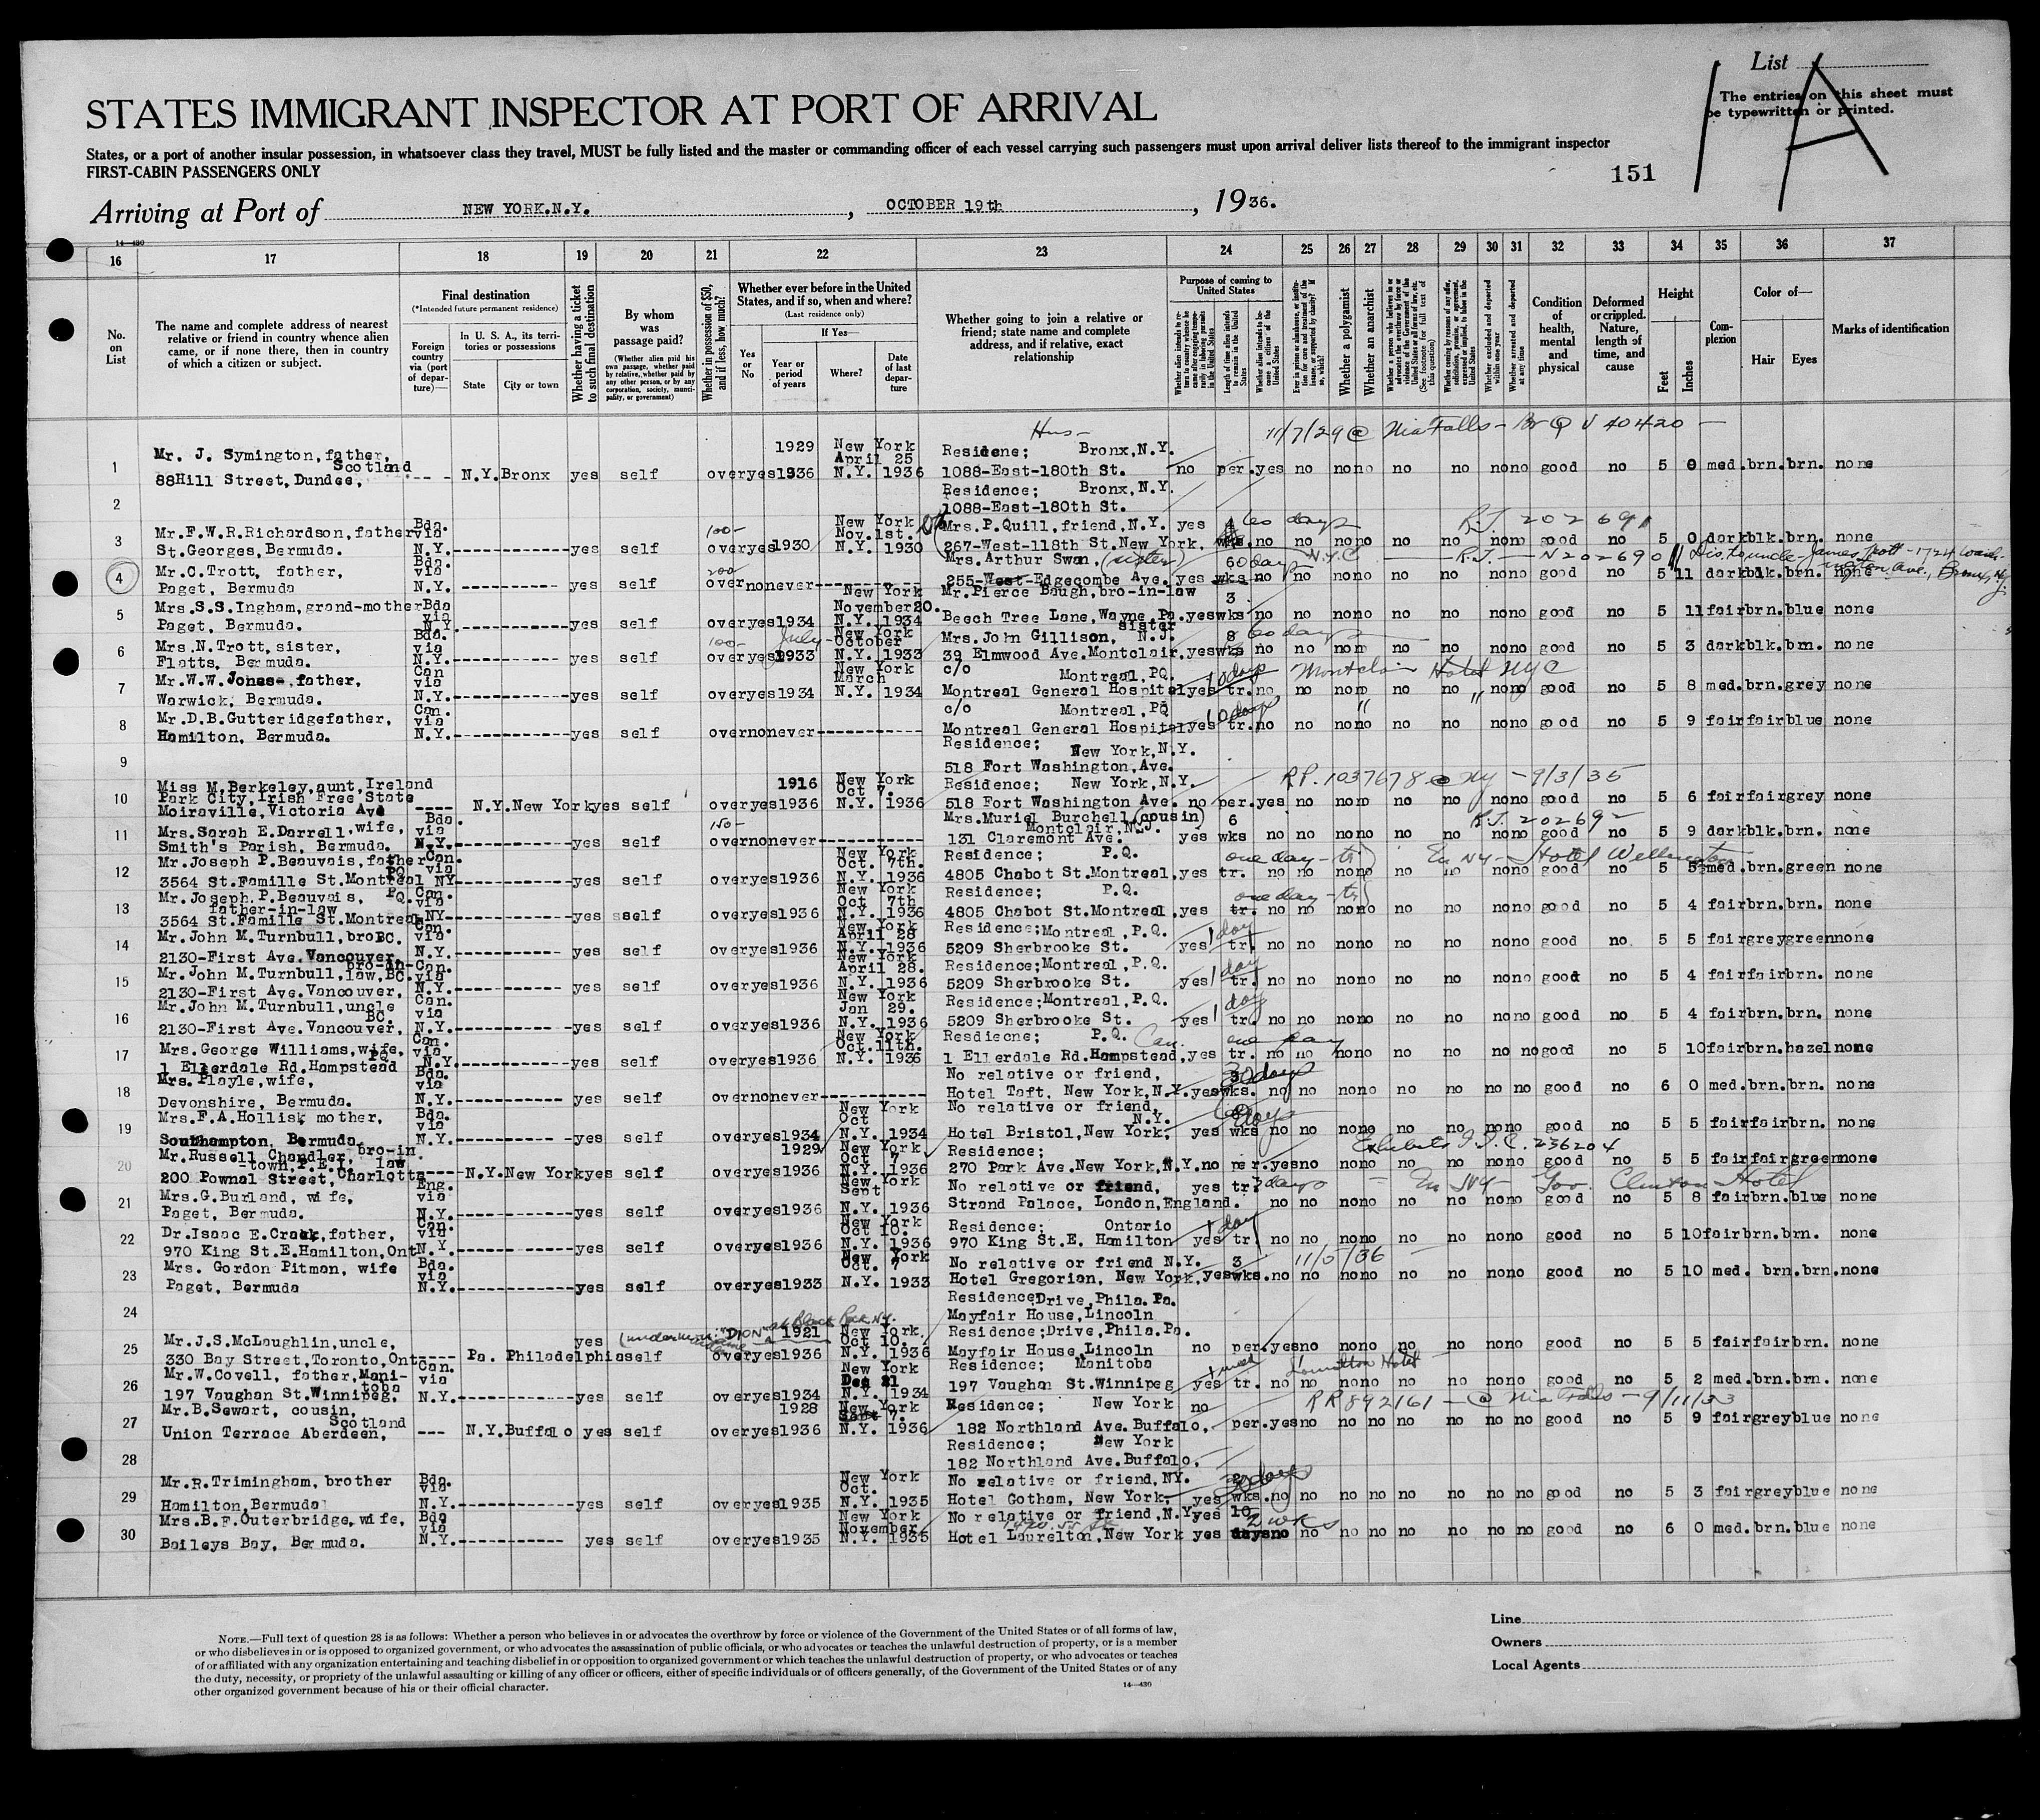 List
The entries on this sheet must
be typewritten or printed.
1A
STATES IMMIGRANT INSPECTOR AT PORT OF ARRIVAL
States, or a port of another insular possession, in whatsoever class they travel, MUST be fully listed and the master or commanding officer of each vessel carrying such passengers must upon arrival deliver lists thereof to the immigrant inspector
FIRST-CABIN PASSENGERS ONLY
151
Arriving at Port of NEW YORK.N.Y. , OCTOBER 19th , 1936.
14—430
16 17 18 19 20 21 22 23 24 25 26 27 28 29 30 31 32 33 34 35 36 37
No. on List
The name and complete address of nearest relative or friend in country whence alien came, or if none there, then in country of which a citizen or subject.
Final destination
(*Intended future permanent residence)
Foreign country via (port of departure)—
In U. S. A., its territories or possessions
State City or town
Whether having a ticket to such final destination
By whom was passage paid?
(Whether alien paid his own passage, whether paid by relative, whether paid by any other person, or by any corporation, society, municipality, or government)
Whether in possession of $50, and if less, how much?
Whether ever before in the United States, and if so, when and where?
(Last residence only)
If Yes—
Yes or No
Year or period of years
Where?
Date of last departure
Whether going to join a relative or friend; state name and complete address, and if relative, exact relationship
Purpose of coming to United States
Length of time alien intends to remain in the United States
Whether alien intends to become a citizen of the United States
Whether a polygamist
Whether an anarchist
Whether excluded and deported within one year
Whether arrested and deported at any time
Condition of health, mental and physical
Deformed or crippled. Nature, length of time, and cause
Height
Feet Inches
Complexion
Color of—
Hair Eyes
Marks of identification
11/7/29 @ Nia Falls —
1 Mr. J. Symington, father, Scotland 88Hill Street, Dundee, --- N.Y. Bronx yes self over yes 1929 1936 New York April 25 N.Y. 1936 Residene; Bronx, N.Y. 1088-East-180th St. no per. yes no no no no no no no good no 5 0 med. brn. brn. none
2 Residence; Bronx, N.Y. 1088-East-180th St.
3 Mr.F.W.R.Richardson, father St.Georges, Bermuda. Bda. via N.Y. yes self 100- over yes 1930 New York Nov.1st. N.Y. 1930 Mrs.P.Quill, friend, N.Y. 267-West-118th St. New York. yes 60 days no no no no no no no no good no 5 0 dark blk. brn. none
R.J. 202691
4 Mr.C.Trott, father, Paget, Bermuda Bda. via N.Y. yes self 200 over no never Mrs. Arthur Swan, (sister) 255-West-Edgecombe Ave. yes wks 60 days no no no no no no no no good no 5 11 dark blk. brn. none
N.Y.C. R.J. — N202690
5 Mrs.S.S.Ingham, grand-mother Paget, Bermuda. Bda via N.Y. yes self over yes 1934 New York November 20. N.Y. 1934 Mr.Pierce Baugh, bro-in-law Beech Tree Lane, Wayne, Pa. yes 3 wks no no no no no no no no good no 5 11 fair brn. blue none
6 Mrs.N.Trott, sister, Flatts, Bermuda. Bda. via N.Y. yes self 100- over yes July 1933 New York October N.Y. 1933 Mrs.John Gillison, sister N.J. 39 Elmwood Ave. Montclair, yes 8 wks 60 days no no no no no no no no good no 5 3 dark blk. brn. none
7 Mr.W.W.Jones, father, Warwick, Bermuda. Can via N.Y. yes self over yes 1934 New York March N.Y. 1934 c/o Montreal, PQ. Montreal General Hospital yes tr. 10 days no no no no no no no no good no 5 8 med. brn. grey none
Hotel NYC
8 Mr.D.B.Gutteridge father, Hamilton, Bermuda. Can. via N.Y. yes self over no never c/o Montreal, PQ Montreal General Hospital yes tr. 10 days no no no no no no no no good no 5 9 fair fair blue none
9 Residence; New York, N.Y. 518 Fort Washington, Ave.
10 Miss M.Berkeley, aunt, Ireland Park City, Irish Free State Moiraville, Victoria Ave ---- N.Y. New York yes self over yes 1916 1936 New York Oct 7. N.Y. 1936 Residence; New York, N.Y. 518 Fort Washington Ave. no per. yes no no no no no no no good no 5 6 fair fair grey none
9/3/35
11 Mrs.Sarah E.Darrell, wife, Smith's Parish, Bermuda. Bda. via N.Y. yes self 150- over no never Mrs.Muriel Burchell (cousin) Montclair, N.J. 131 Claremont Ave. yes 6 wks no no no no no no no no good no 5 9 dark blk. brn. none
R.J. 202692
12 Mr.Joseph P.Beauvais, father PQ 3564 St.Famille St. Montreal Can. via NY yes self over yes 1936 New York Oct. 7th. N.Y. 1936 Residence; P.Q. 4805 Chabot St. Montreal, yes tr. one day - tr no no no no no no no no good no 5 5½ med. brn. green none
Hotel Wellington
13 Mr.Joseph.P.Beauvais, PQ. father-in-law 3564 St.Famille St. Montreal Can. via NY yes self over yes 1936 New York Oct 7th N.Y. 1936 Residence; P.Q. 4805 Chabot St. Montreal, yes tr. one day - tr no no no no no no no no good no 5 4 fair brn. brn. none
14 Mr.John M.Turnbull, bro BC. 2130-First Ave. Vancouver, Can. via N.Y. yes self over yes 1936 New York April 28 N.Y. 1936 Residence; Montreal, P.Q. 5209 Sherbrooke St. yes tr. 1 day no no no no no no no no good no 5 5 fair grey green none
15 Mr.John M.Turnbull, bro-in-law, BC. 2130-First Ave. Vancouver, Can. via N.Y. yes self over yes 1936 New York April 28. N.Y. 1936 Residence; Montreal, P.Q. 5209 Sherbrooke St. yes tr. 1 day no no no no no no no no good no 5 4 fair fair brn. none
16 Mr.John M.Turnbull, uncle BC. 2130-First Ave. Vancouver, Can. via N.Y. yes self over yes 1936 New York Jan 29. N.Y. 1936 Residence; Montreal, P.Q. 5209 Sherbrooke St. yes tr. 1 day no no no no no no no no good no 5 4 fair brn. brn. none
17 Mrs.George Williams, wife, PQ 1 Ellerdale Rd. Hampstead Can. via N.Y. yes self over yes 1936 New York Oct. 11th. N.Y. 1936 Resdiecne; P.Q. Can. 1 Ellerdale Rd. Hampstead, yes tr. one day no no no no no no no no good no 5 10 fair brn. hazel none
18 Mrs.Playle, wife, Devonshire, Bermuda. Bda. via N.Y. yes self over no never No relative or friend, Hotel Taft, New York, N.Y. yes wks. 30 days no no no no no no no no good no 6 0 med. brn. brn. none
19 Mrs.F.A.Hollis, mother, Southampton, Bermuda. Bda. via N.Y. yes self over yes 1934 New York Oct N.Y. 1934 No relative or friend, N.Y. Hotel Bristol, New York, yes wks no no no no no no no no good no 5 5 fair fair brn. none
20 Mr.Russell Chandler, bro-in law -town, P.E.I. 200 Pownal Street, Charlotte ---- N.Y. New York yes self over yes 1929 1936 New York Oct 7 N.Y. 1936 Residence; 270 Park Ave. New York, N.Y. no per. yes no no no no no no no good no 5 5 fair fair green none
236204
21 Mrs.G.Burland, wife, Paget, Bermuda. Eng. via N.Y. yes self over yes 1936 New York Sept N.Y. 1936 No relative or friend, Strand Palace, London, England. yes tr. 3 days no no no no no no no no good no 5 8 fair brn. blue none
Gov. Clinton Hotel
22 Dr.Isaac E.Crack, father, 970 King St.E.Hamilton, Ont Can. via N.Y. yes self over yes 1936 New York Oct 10. N.Y. 1936 Residence; Ontario 970 King St.E. Hamilton yes tr. 1 day no no no no no no no no good no 5 10 fair brn. brn. none
23 Mrs. Gordon Pitman, wife Paget, Bermuda Bda. via N.Y. yes self over yes 1933 New York Oct. 7 N.Y. 1933 No relative or friend N.Y. Hotel Gregorian, New York, yes 3 wks. no no no no no no no no good no 5 10 med. brn. brn. none
11/5/36
24 Residence; Drive, Phila. Pa. Mayfair House, Lincoln
25 Mr.J.S.McLaughlin, uncle, 330 Bay Street, Toronto, Ont ---- Pa. Philadelphia yes self over yes 1921 1936 New York, Oct 10. N.Y. 1936 Residence; Drive, Phila. Pa. Mayfair House, Lincoln no per. yes no no no no no no no good no 5 5 fair fair brn. none
26 Mr.W.Covell, father, Manitoba 197 Vaughan St. Winnipeg, Can. via N.Y. yes self over yes 1934 New York Dec 21 N.Y. 1934 Residence; Manitoba 197 Vaughan St. Winnipeg yes tr. no no no no no no no no good no 5 2 med. brn. brn. none
27 Mr.B.Sewart, cousin, Scotland Union Terrace Aberdeen, --- N.Y. Buffalo yes self over yes 1928 1936 New York Sept 7. N.Y. 1936 Residence; New York 182 Northland Ave. Buffalo, no per. yes no no no no no no no good no 5 9 fair grey blue none
RR 892161 - @ Nia Falls - 9/11/33
28 Residence; New York 182 Northland Ave. Buffalo,
29 Mr.R.Trimingham, brother Hamilton, Bermuda Bda. via N.Y. yes self over yes 1935 New York Oct. N.Y. 1935 No relative or friend, NY. Hotel Gotham, New York, yes wks. 30 days no no no no no no no no good no 5 3 fair grey blue none
30 Mrs.B.F.Outerbridge, wife, Baileys Bay, Bermuda. Bda via N.Y. yes self over yes 1935 New York November N.Y. 1935 No relative or friend, N.Y. Hotel Laurelton, New York yes 10 days 2 wks no no no no no no no no good no 6 0 med. brn. blue none
NOTE.—Full text of question 28 is as follows: Whether a person who believes in or advocates the overthrow by force or violence of the Government of the United States or of all forms of law,
or who disbelieves in or is opposed to organized government, or who advocates the assassination of public officials, or who advocates or teaches the unlawful destruction of property, or is a member
of or affiliated with any organization entertaining and teaching disbelief in or opposition to organized government or which teaches the unlawful destruction of property, or who advocates or teaches
the duty, necessity, or propriety of the unlawful assaulting or killing of any officer or officers, either of specific individuals or of officers generally, of the Government of the United States or of any
other organized government because of his or their official character.
14—430
Line
Owners
Local Agents